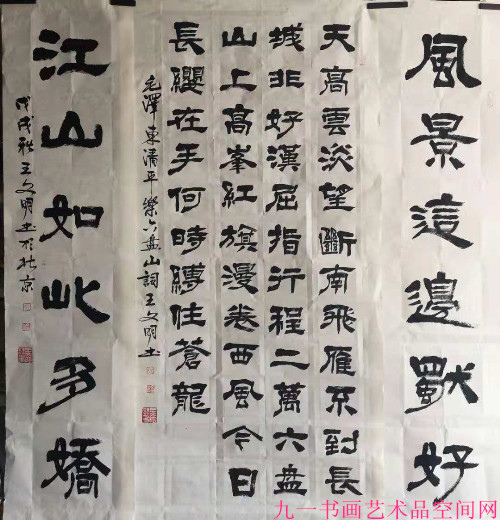 風景這邊獨好
天高雲淡望斷南飛雁不到長
城非好漢屈指行程二萬六盘
山上高峯紅旗漫卷西風今日
長纓在手何時縛住蒼龍
毛澤東清平樂六盘山詞王文明书
江山如此多嬌
戊戌秋王文明书於北京
九一书画艺术品空间网